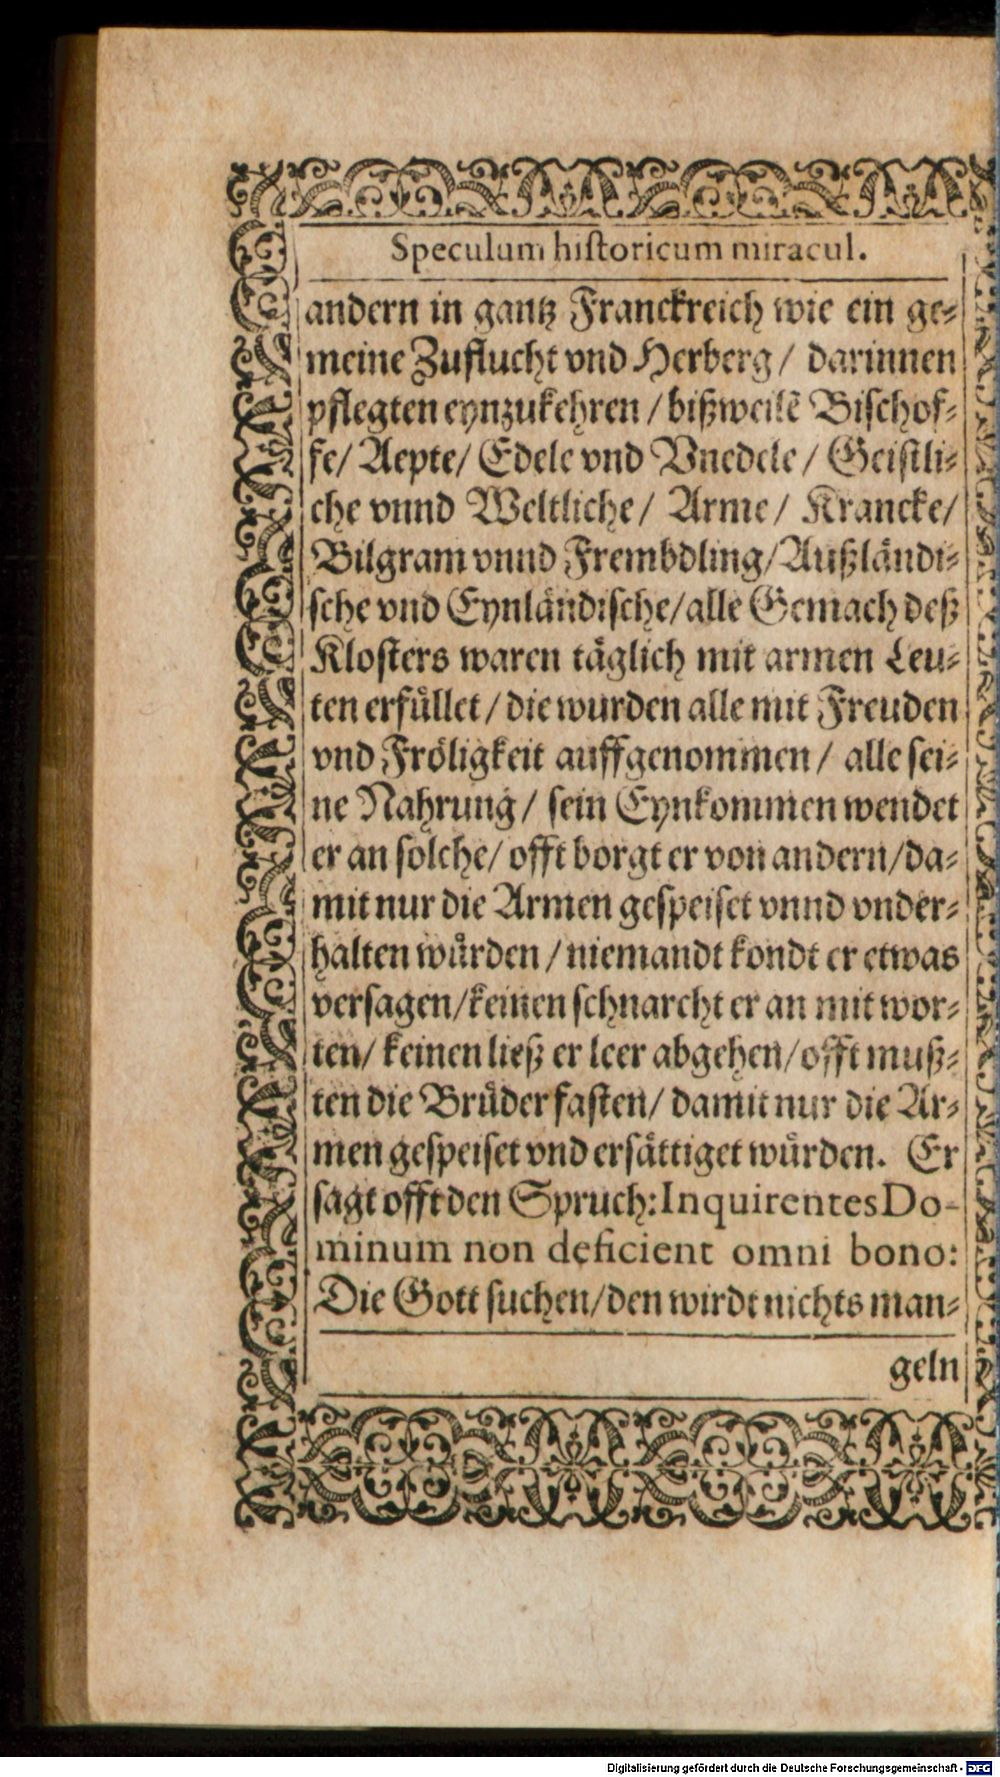 Speculum historicum miracul.
andern in gantz Franckreich wie ein ge-
meine Zuflucht vnd Herberg / darinnen
pflegten eynzukehren / bißweilē Bischof-
fe / Aepte / Edele vnd Vnedele / Geistli-
che vnnd Weltliche / Arme / Krancke /
Bilgram vnnd Frembdling / Außländi-
sche vnd Eynländische / alle Gemach deß
Klosters waren täglich mit armen Leu-
ten erfüllet / die wurden alle mit Freuden
vnd Fröligkeit auffgenommen / alle sei-
ne Nahrung / sein Eynkommen wendet
er an solche / offt borgt er von andern / da-
mit nur die Armen gespeiset vnnd vnder-
halten würden / niemandt kondt er etwas
versagen / keinen schnarcht er an mit wor-
ten / keinen ließ er leer abgehen / offt muß-
ten die Brüder fasten / damit nur die Ar-
men gespeiset vnd ersättiget würden. Er
sagt offt den Spruch: Inquirentes Do-
minum non deficient omni bono:
Die Gott suchen / den wirdt nichts man-
geln
Digitalisierung gefördert durch die Deutsche Forschungsgemeinschaft - DFG